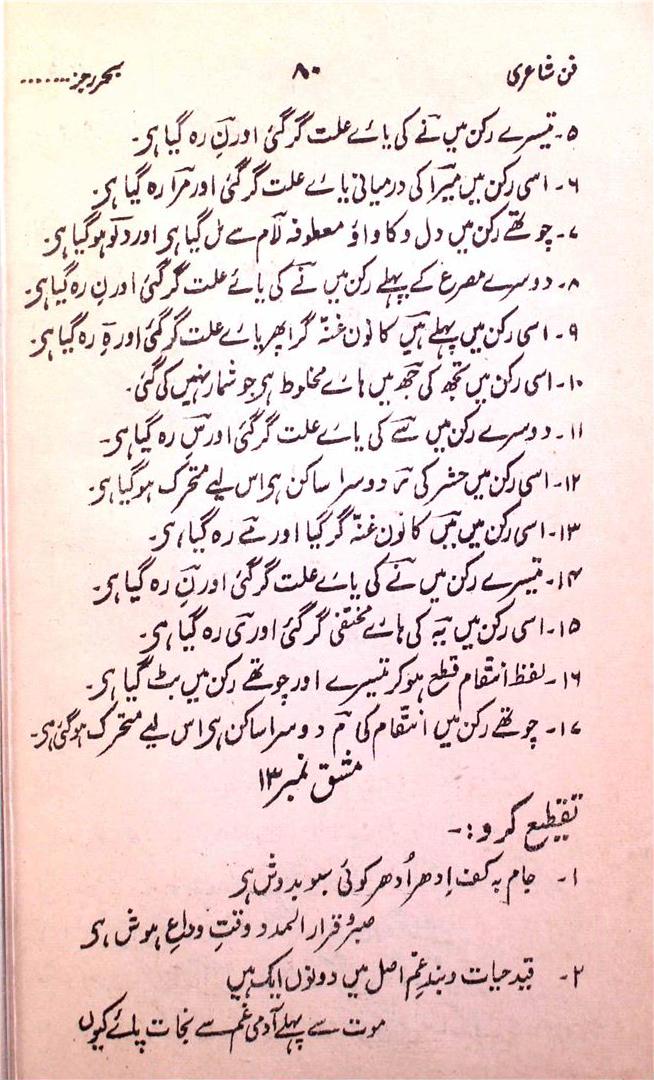 فن شاعری ۸۰ بحر رجز.......
۵۔ تیسرے رکن میں نے کی یائے علت گر گئی اور نِ رہ گیا ہی۔
۶۔ اسی رکن میں میرا کی درمیانی یائے علت گر گئی اور مرا رہ گیا ہی۔
۷۔ چوتھے رکن میں دل و کا واؤ معطوفہ لام سے مل گیا ہی اور دلو ہو گیا ہی۔
۸۔ دوسرے مصرع کے پہلے رکن میں نے کی یائے علت گر گئی اور نِ رہ گیا ہی۔
۹۔ اسی رکن میں پہلے ہیں کا نون غنہ گرا پھر یائے علت گر گئی اور ہِ رہ گیا ہی۔
۱۰۔ اسی رکن میں تجھ کی جھ میں ہائے مخلوط ہی جو شمار نہیں کی گئی۔
۱۱۔ دوسرے رکن میں سے کی یائے علت گر گئی اور سِ رہ گیا ہی۔
۱۲۔ اسی رکن میں حشر کی ر دوسرا ساکن ہی اس لیے متحرک ہو گیا ہی۔
۱۳۔ اسی رکن میں میں کا نون غنہ گر گیا اور مے رہ گیا ہی۔
۱۴۔ تیسرے رکن میں نے کی یائے علت گر گئی اور نِ رہ گیا ہی۔
۱۵۔ اسی رکن میں یہ کی ہائے مختفی گر گئی اور ی رہ گیا ہی۔
۱۶۔ لفظ انتقام قطع ہو کر تیسرے اور چوتھے رکن میں بٹ گیا ہی۔
۱۷۔ چوتھے رکن میں انتقام کی م دوسرا ساکن ہی اس لیے متحرک ہو گئی ہی۔
مشق نمبر ۱۳
تقطیع کرو :۔
۱۔ جام بہ کف اِدھر اُدھر کوئی سبو بدوش ہی
صبر و قرار المدد وقتِ وداعِ ہوش ہی
۲۔ قید حیات و بند غم اصل میں دونوں ایک ہیں
موت سے پہلے آدمی غم سے نجات پائے کیوں